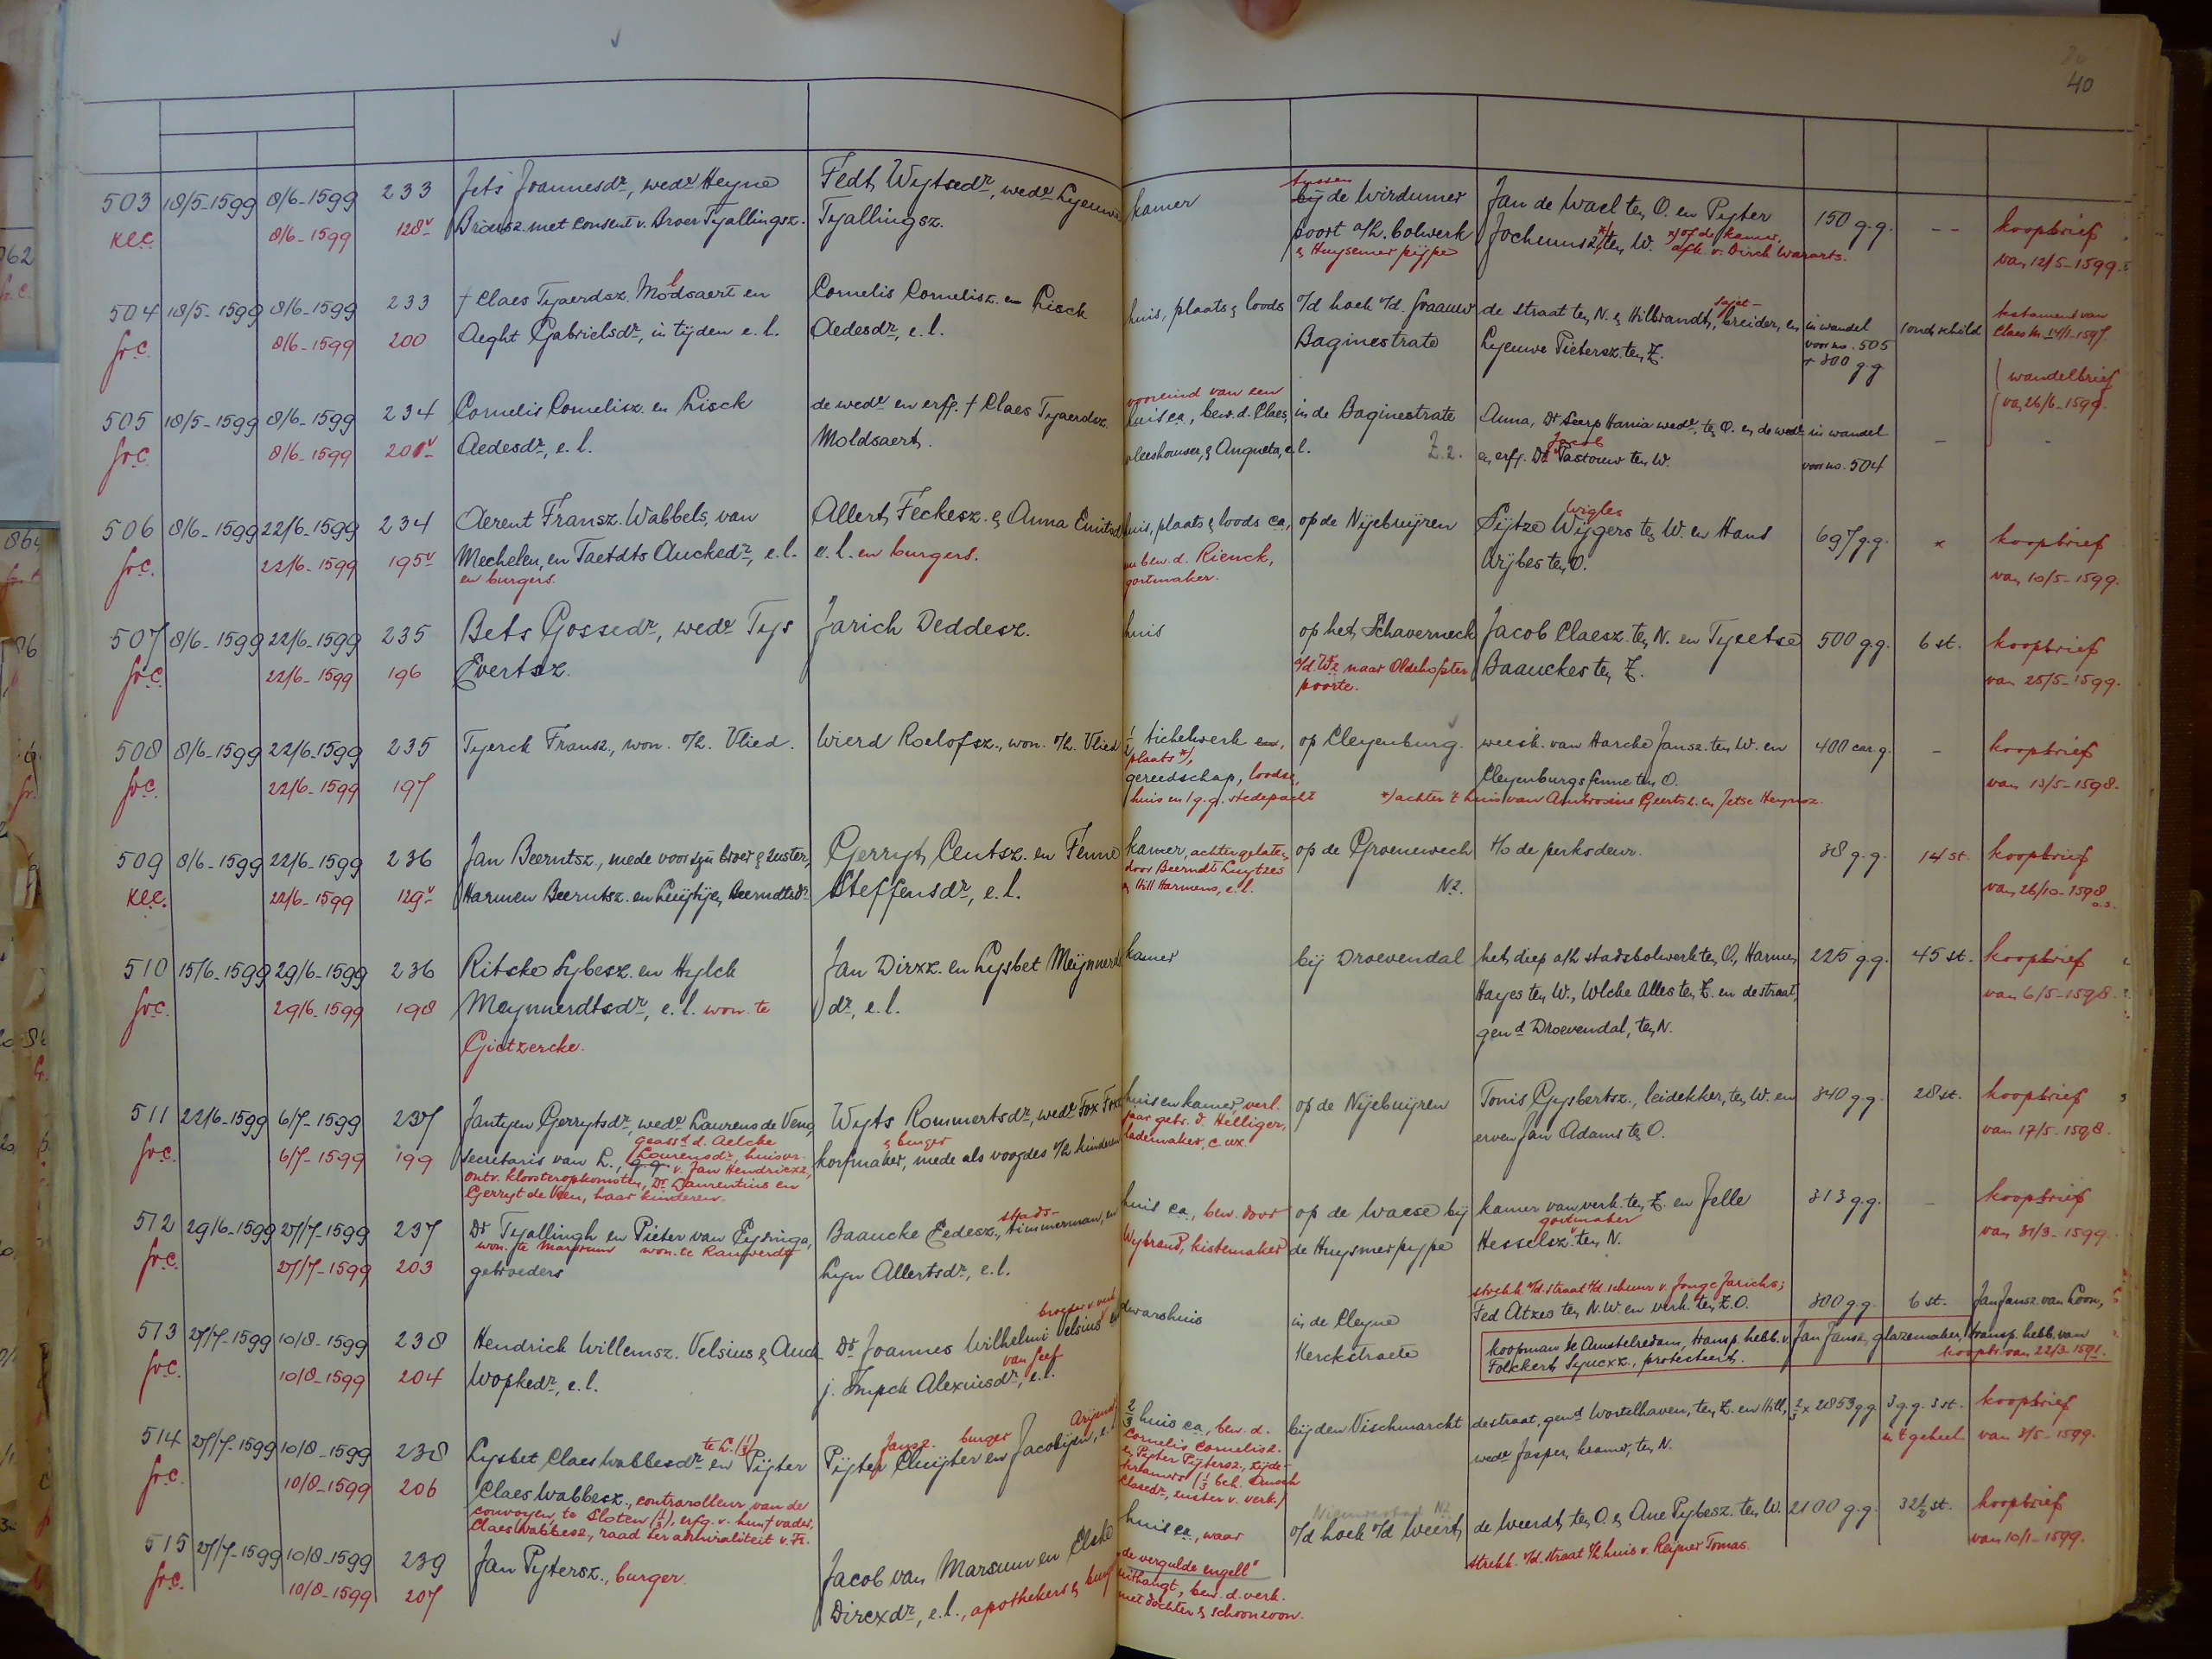 40
503 18/5-1599 8/6-1599 233 Jets Joannesdr, wedr Heyne Fedt Wytsedr, wedr Lyeuwe kamer tussen bij de Wirdumer Jan de Wael ten O. en Pyter 150 g.g. -- koopbrief
rec. 8/6-1599 128v Broersz. met consent v. Broer Tyallingsz. Tyallingsz. poort a/h. bolwerk Jochumsz. x) ten W. x) of de kamer, van 12/5-1599.
& Huysemer pijpe afk. v. Dirck Wararts.
504 18/5-1599 8/6-1599 233 † Claes Tyaerdsz. Moldsaert en Cornelis Cornelisz. en Lisck huis, plaats & loods o/d hoek v/d. Graauw de straat ten N. & Hilbrandt, sajet-breider, en in wandel 1 oud schild testament van
sr.c. 8/6-1599 200 Aeght Gabrielsdr, in tijden e.l. Aedesdr, e.l. Baginestrate Lyeuwe Pietersz. ten Z. voor no. 505 Claes M. 14/1-1597.
+ 300 g.g. wandelbrief
van 26/6-1599.
505 18/5-1599 8/6-1599 234 Cornelis Cornelisz. en Lisck de wedr en erfg. † Claes Tyaerdsz. vooreind van een huis ca., bew. d. Claes, in de Baginestrate Anna, Dr Seerp Hania wedr, ten O. en de wedr in wandel -
sr.c. 8/6-1599 201v Aedesdr, e.l. Moldsaert. vleeshouwer, & Angneta, e.l. Z.z. en erfg. Dr Jacob Tastouw ten W. voor no. 504
506 8/6-1599 22/6-1599 234 Aerent Fransz. Wabbels, van Allert Feckesz. & Anna huis, plaats & loods ca., op de Nijebuijren Sijtze Wijgers Wigles ten W. en Hans 697 g.g. x koopbrief
sr.c. 22/6-1599 195v Mechelen, en Taetdts Auckedr, e.l. e.l. en burgers. nu bew. d. Rienck, Arijbes ten O. van 10/5-1599.
en burgers. gortmaker.
507 8/6-1599 22/6-1599 235 Bets Gossedr, wedr Tys Jarich Deddesz. huis op het Schaverneck Jacob Claesz. ten N. en Tyeetse 500 g.g. 6 st. koopbrief
sr.c. 22/6-1599 196 Evertsz. o/d Wz naar Oldehofster Baauckes ten Z. van 25/5-1599.
poorte.
508 8/6-1599 22/6-1599 235 Tyerck Fransz., won. o/h. Vlied. Wierd Roelofsz., won. o/h. Vlied tichelwerk en, op Cleyenburg. weesk. van Harcke Jansz. ten W. en 400 car.g. - koopbrief
sr.c. 22/6-1599 197 plaats *), Cleyenburgsfenne ten O. van 13/5-1598.
gereedschap, loodse,
huis en 1 g.g. stedepacht *) achter 't huis van Ambrosius Geertsz. en Jetse Heynsz.
509 8/6-1599 22/6-1599 236 Jan Beerntsz., mede voor zijn broer & zuster, Gerryt Centsz. en Fenne kamer, achtergelaten op de Groenewech t/o de perksdeur. 38 g.g. 14 st. koopbrief
rec. 22/6-1599 129v Harmen Beerntsz. en Luijtijen Beerndtsdr Steffensdr, e.l. door Beerndt Luytzes N.z. van 26/10-1598
& Hill Harmens, e.l. o.s.
510 15/6-1599 29/6-1599 236 Ritske Sybesz. en Hylck Jan Dirxz. en Lysbet Meijnnerds kamer bij Droevendal het diep a/h stadsbolwerk ten O., Harmen 225 g.g. 45 st. koopbrief
sr.c. 29/6-1599 198 Meynnerdtsdr, e.l. won. te dr, e.l. Hayes ten W., Wlcke Alles ten Z. en de straat, van 6/5-1598.
Gietzercke. gend Droevendal, ten N.
511 22/6-1599 6/7-1599 237 Jantyen Gerrytsdr, wedr Laurens de Veno, Wyts Rommertsdr, wedr Fox Foxz. huis en kamer, verl. op de Nijebuijren Tonis Gysbertsz., leidekker, ten W. en 340 g.g. 28 st. koopbrief
sr.c. 6/7-1599 199 secretaris van L., geassd d. Aelcke Laurensdr, huisvr. v. Jan Hendricxz., & burger korfmaker, mede als voogdes o/h kinderen jaar gebr. d. Helliger, erven Jan Adams ten O. van 17/5-1598.
ontv. kloosteropkomsten, Dr Laurentius en ladenmaker, c. ux.
Gerryt de Veen, haar kinderen.
512 29/6-1599 27/7-1599 237 Dr Tyallingh en Pieter van Eysinga, Baucke Eedesz., stads-timmerman, en huis ca., bew. door op de Waese bij kamer van verk. ten Z. en Jelle 313 g.g. - koopbrief
sr.c. 27/7-1599 203 won. te Marssum won. te Rauwerda gebroeders Lyn Allertsdr, e.l. Wybrand, kistemaker de Huysmerpype Hesselsz. gortmaker ten N. van 31/3-1599.
513 27/7-1599 10/8-1599 238 Hendrick Willemsz. Velsius & Auck Dr Joannes Wilhelmi Velsius broeder v. verk. en dwarshuis in de Cleyne strekk. v/d. straat t/d schuur v. Jonge Jarichs; Fed Atzes ten N.W. en verk. ten Z.O. 300 g.g. 6 st. Jan Jansz. van Loon,
sr.c. 10/8-1599 204 Wopkedr, e.l. j. Impck Alexiusdr, van Seef e.l. Kerckstraete koopman te Amstelredam, transp. hebb. v. Jan Jansz., glazemaker, transp. hebb. van
Folckert Syncxz., protesteert. koopbr. van 22/3-1591.
514 27/7-1599 10/8-1599 238 Lysbet Claes Wabbesdr te L. (1/3) en Pijter Pijter Jansz. Cluijter burger en Jacobijen Arijensdr, e.l. 2/3 huis ca., bew. d. bij den Vischmarckt de straat, gend Wortelhaven, ten Z. en Hill, 2/3 x 2853 g.g. 3 g.g. 3 st. koopbrief
sr.c. 10/8-1599 206 Claes Wabbesz., contrarolleur van de Cornelis Cornelisz. wedr Jasper, kramer, ten N. in 't geheel van 8/5-1599.
convoyen, te Sloten (1/3), erfg. v. hun † vader, & Pijter Pijtersz., zijde-
Claes Wabbesz., raad ter admiraliteit v. Fr. kramers (1/3 beh. Claesdr, zuster v. verk.)
515 27/7-1599 10/8-1599 239 Jan Pytersz., burger. Jacob van Marssum en Elske huis ca., waar o/d hoek v/d Weert, de Weerdt ten O. & Ane Pybesz. ten W. 2100 g.g. 32½ st. koopbrief
sr.c. 10/8-1599 207 Dircxdr, e.l., apothekers & "de vergulde engell" strekk. v/d. straat t/h huis v. Reyner Tomas. van 10/1-1599.
uithangt, bew. d. verk.
met dochter & schoonzoon.